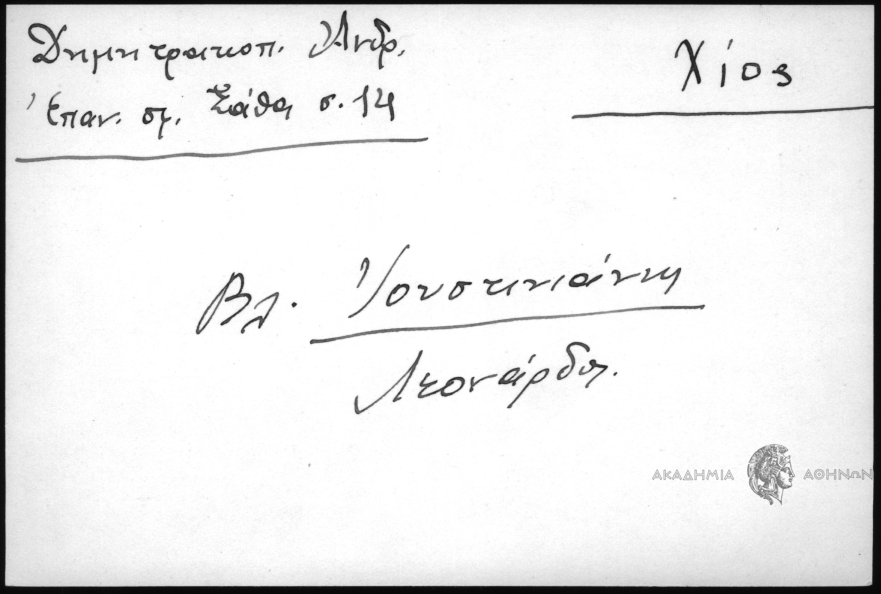 Δημητρακοπ. Ἀνδρ.
Ἐπαν. σ. Σάθα σ. 14
Χίος
Βλ. Ἰουστινιάνη
Λεονάρδος.
ΑΚΑΔΗΜΙΑ ΑΘΗΝΩΝ